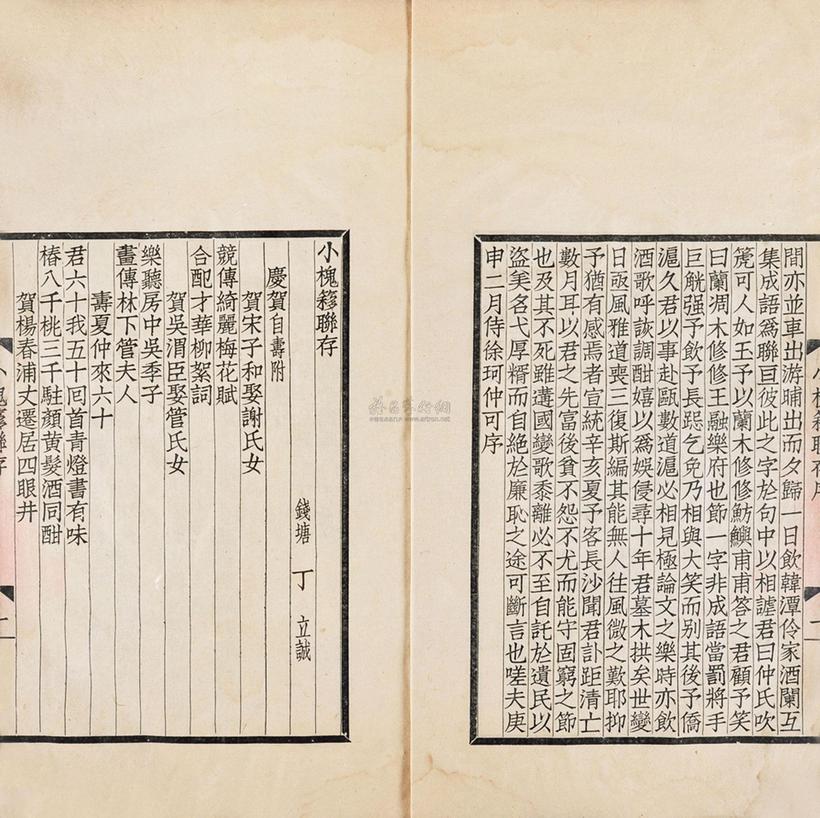 間亦並車出游晡出而夕歸一日飲韓潭伶家酒闌互
集成語爲聯亘彼此之字於句中以相謔君曰仲氏吹
箎可人如玉予以蘭木修修魴鱮甫甫答之君顧予笑
曰蘭凋木修修王融樂府也節一字非成語當罰將手
巨觥强予飲予長跽乞免乃相與大笑而别其後予僑
滬久君以事赴甌數道滬必相見極論文之樂時亦飲
酒歌呼詼調酣嬉以爲娛侵尋十年君墓木拱矣世變
日亟風雅道喪三復斯編其能無人往風微之歎耶抑
予猶有感焉者宣統辛亥夏予客長沙聞君訃距清亡
數月耳以君之先富後貧不怨不尤而能守固窮之節
也及其不死雖遘國變歌黍離必不至自託於遺民以
盜美名弋厚糈而自絕於廉恥之途可斷言也嗟夫庚
申二月侍徐珂仲可序
小槐簃聯存序
小槐簃聯存
錢塘 丁 立誠
慶賀自壽附
賀宋子和娶謝氏女
競傳綺麗梅花賦
合配才華柳絮詞
賀吳渭臣娶管氏女
樂聽房中吳季子
畫傳林下管夫人
壽夏仲來六十
君六十我五十回首青燈書有味
椿八千桃三千駐顏黃髮酒同酣
賀楊春浦丈遷居四眼井
小槐簃聯存
一